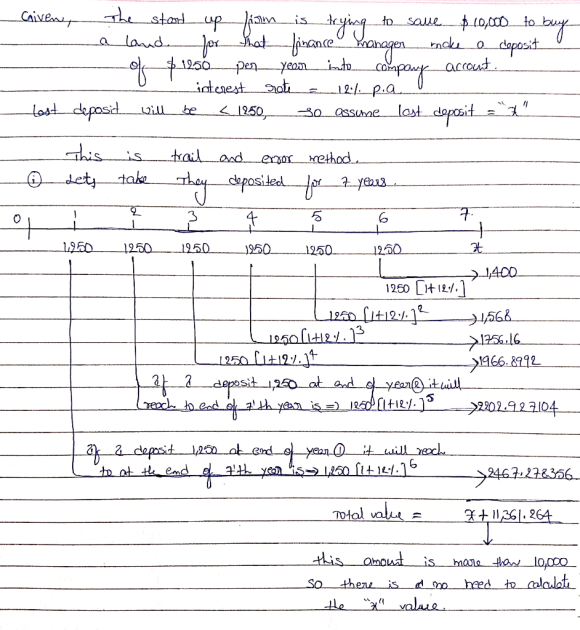 Given, The start up firm is trying to save $10,000 to buy
a land. for that finance manager make a deposit
of $1250 per year into company account.
interest rate = 12% p.a.
Last deposit will be < 1250, so assume last deposit = "x"
This is trail and error method.
① Lets take They deposited for 7 years.
0 1 2 3 4 5 6 7
1,250 1250 1250 1250 1250 1250 x
1250 [1+12%] → 1,400
1250 [1+12%]² → 1,568
1250 [1+12%]³ → 1756.16
1250 [1+12%]⁴ → 1966.8992
If I deposit 1,250 at end of year ② it will
reach to end of 7'th year is => 1250 [1+12%]⁵ → 2202.927104
If I deposit 1,250 at end of year ① it will reach
to at the end of 7'th year is → 1,250 [1+12%]⁶ → 2467.278356
Total value = x + 11,361.264
this amount is more than 10,000
so there is no need to calculate
the "x" value.